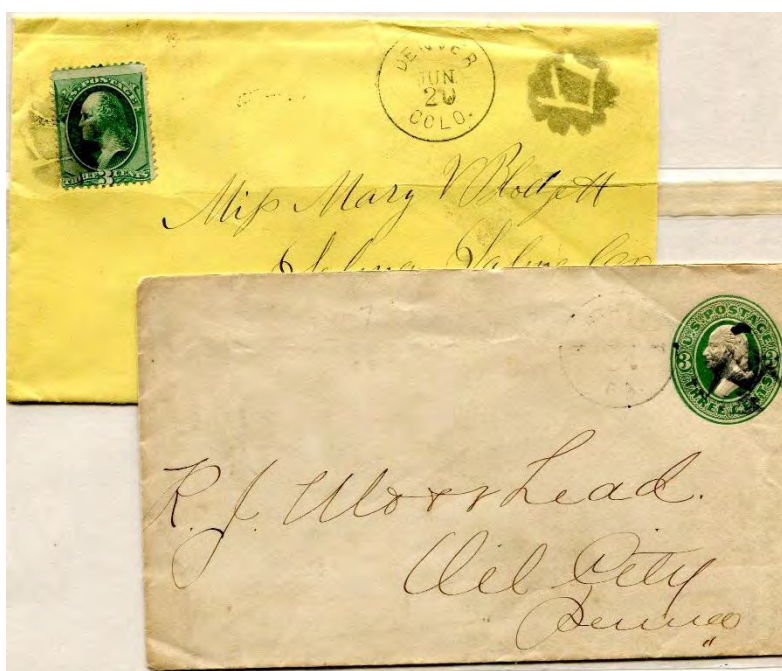 U.S. POSTAGE
THREE CENTS
DENVER
JUN
20
COLO.
Miss Mary V Blodgett
Salina Saline Co
U.S. POSTAGE
3
THREE CENTS
PA.
R. J. Moorhead.
Oil City
Penna